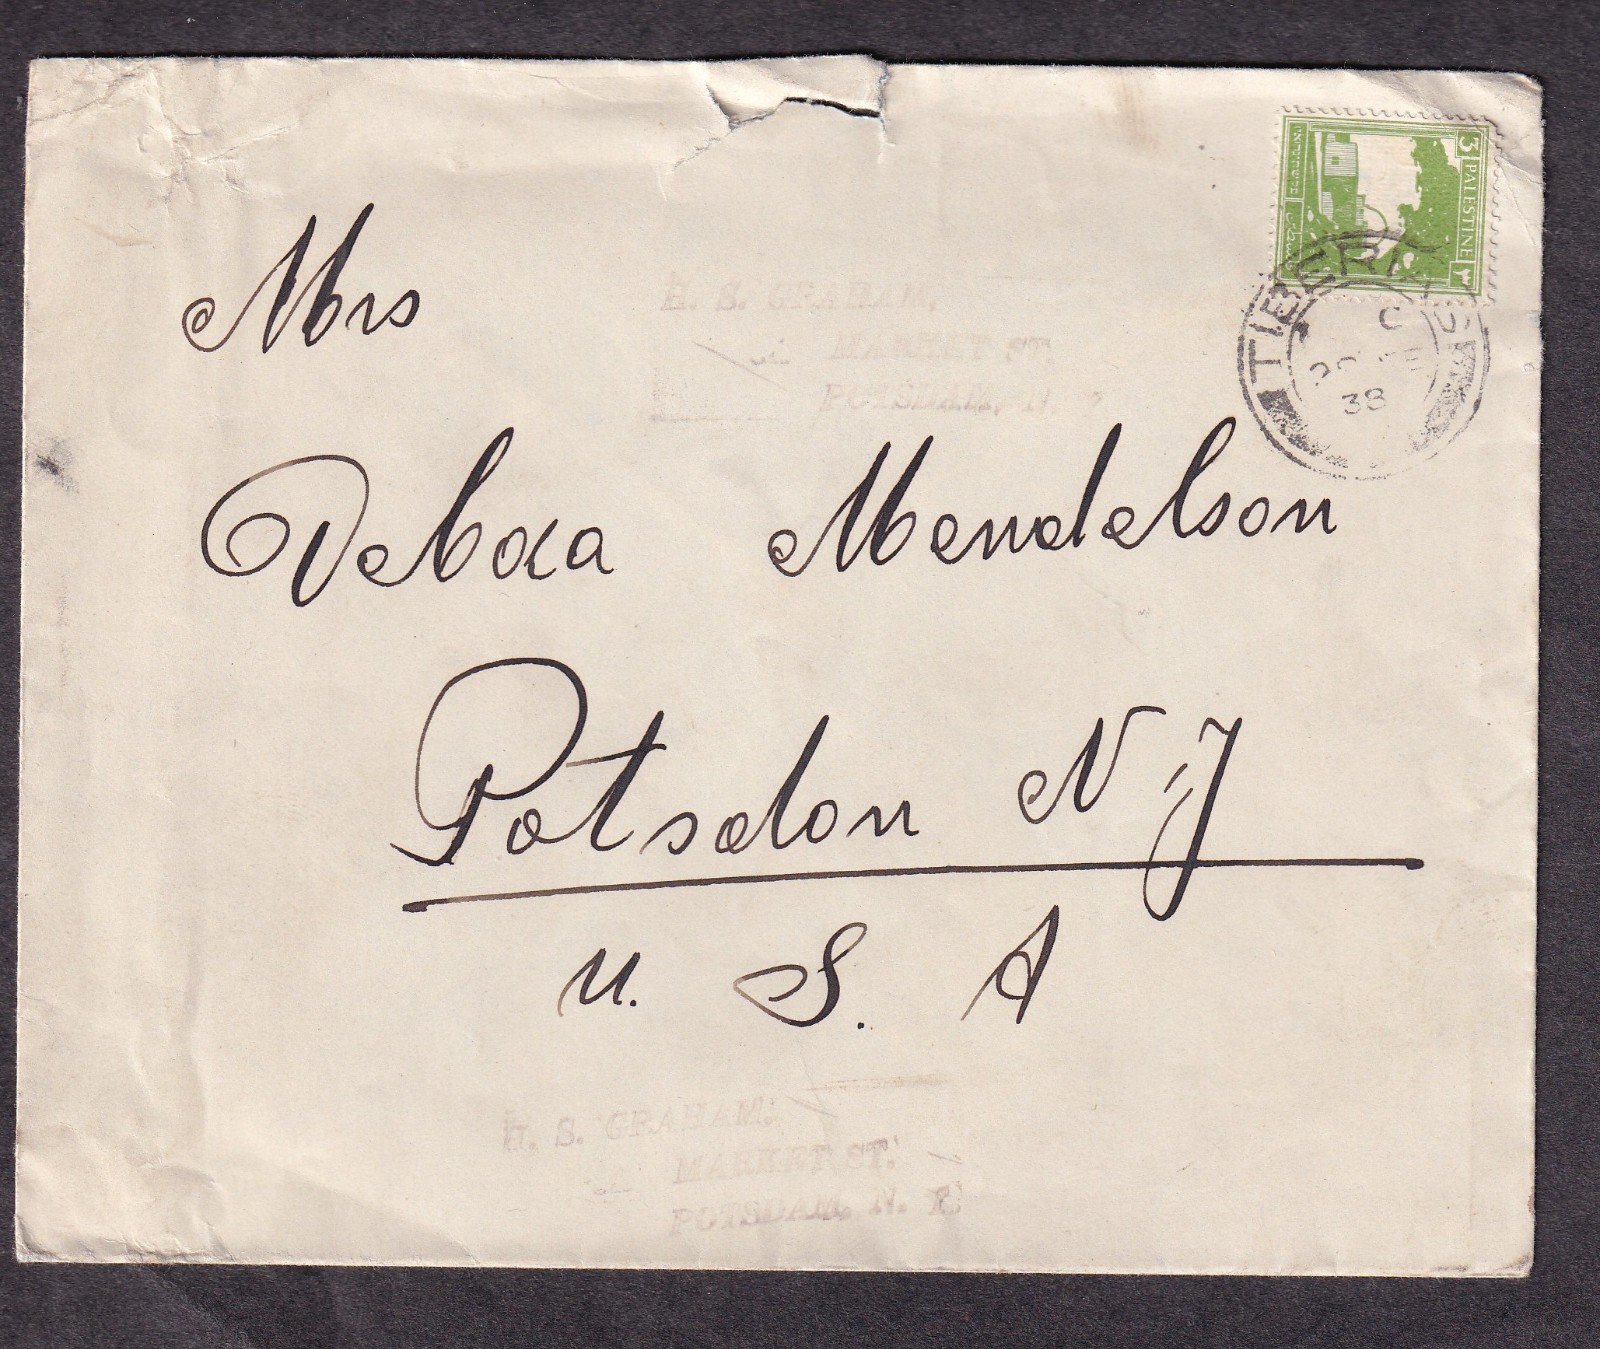 3 PALESTINE ٣
TIBERIAS
38
Mrs
H. S. GRAHAM,
MARKET ST.
POTSDAM, N.
Debora Mendelson
Potsdon N.J
U. S. A
H. S. GRAHAM.
MARKET ST.
POTSDAM, N.